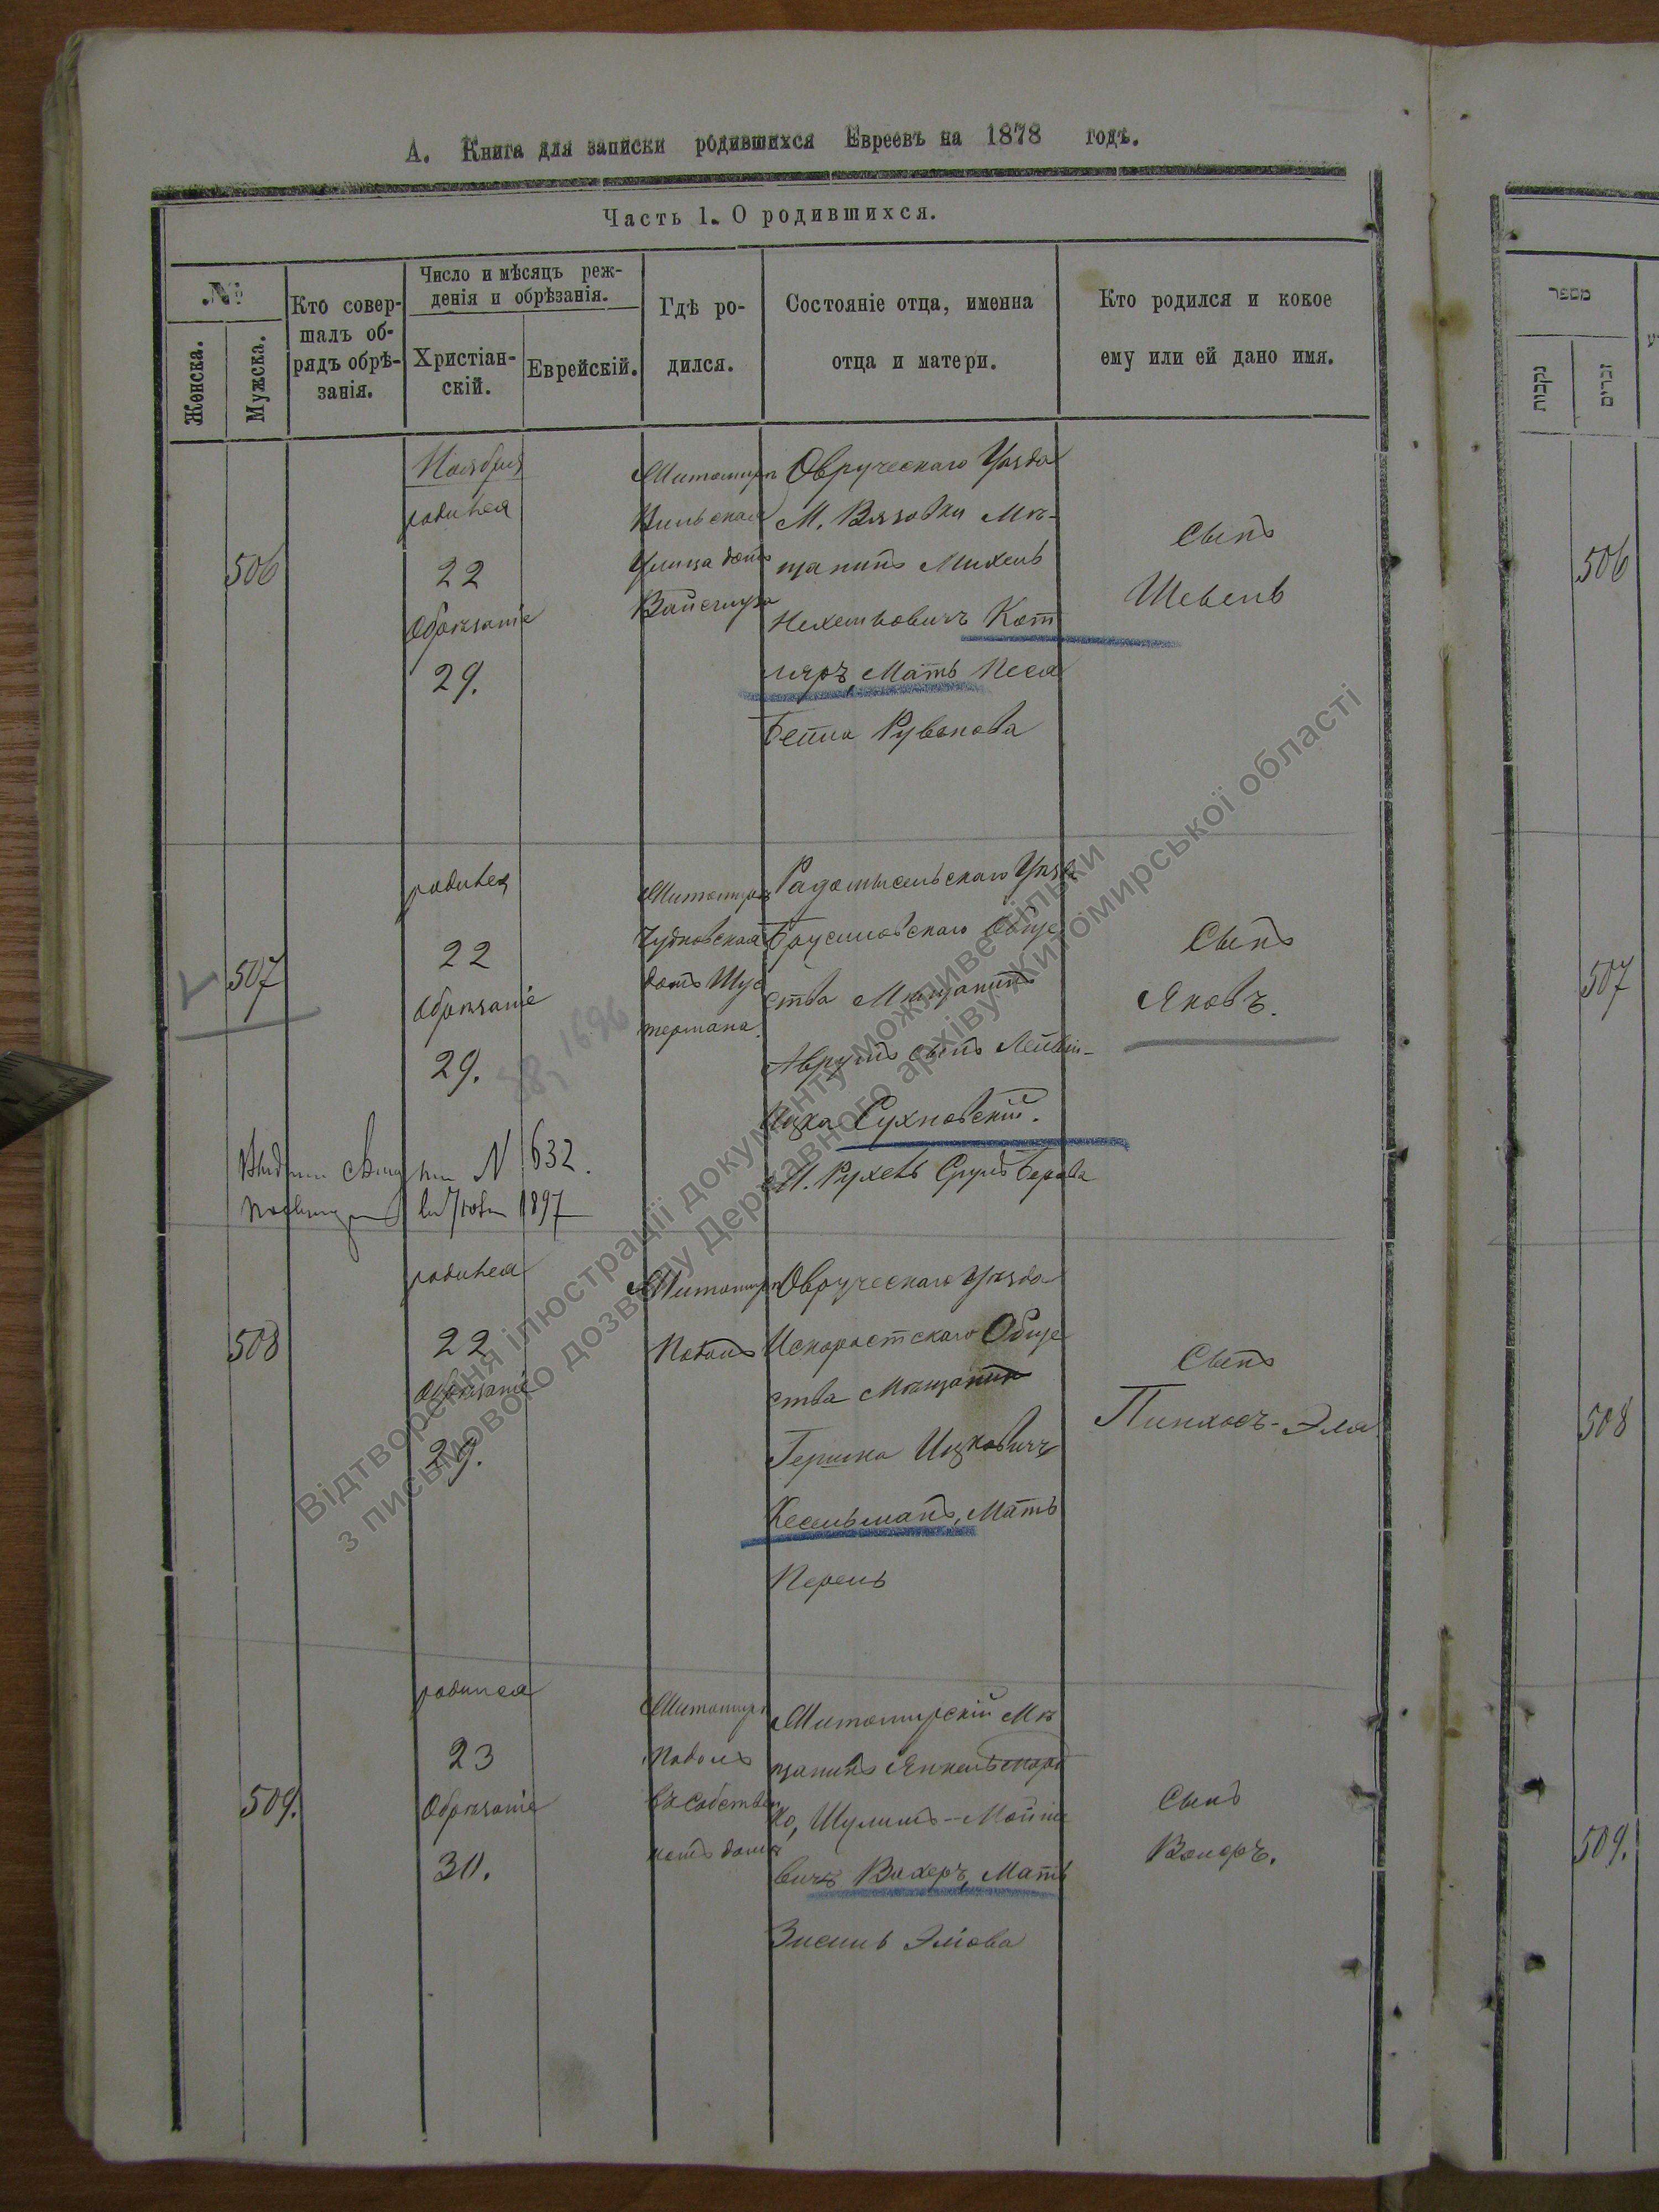 А. Книга для записки родившихся Евреевъ на 1878 годъ.
Часть 1. О родившихся.
№
Женска.
Мужска.
Кто совер-
шалъ об-
рядъ обрѣ-
занія.
Число и мѣсяцъ реж-
денія и обрѣзанія.
Христіан-
скій.
Еврейскій.
Гдѣ ро-
дился.
Состояніе отца, именна
отца и матери.
Кто родился и кокое
ему или ей дано имя.
506
Ноября
родился
22
Обрѣзаніе
29.
Житомиръ
Вильская
Улица домъ
Овруческаго Уѣзда
М. Вязовки Мѣ-
щанинъ Михель
Нехемьовичъ Кот
ляръ, Мать Песя
Бейла Рувенова
Сынъ
Шевель
507
родился
22
Обрѣзаніе
29.
58, 1696
Житомиръ
Чудновская
домъ Шус
термана.
Радомысельскаго Уѣзда
Брусиловскаго Обще
ства Мѣщанинъ
Аврумъ сынъ Лейбы-
Ицка Сухновскій.
М. Рухель Срулъ Берова
Сынъ
Яковъ.
N 632.
1897
508
родился
22
Обрѣзаніе
29.
Житомиръ
Подолъ
Овруческаго Уѣзда
Искоростскаго Обще
ства Мѣщанин
Гершко Ицковичъ
Кесельманъ, Мать
Перель
Сынъ
Пинхосъ-Эля
509.
родился
23
Обрѣзаніе
30.
Житомиръ
Подолъ
въ собствен
номъ домѣ
Житомирскій Мѣ
щанинъ Янкель Морд
ко, Шулимъ-Мойше
вичъ Вахеръ, Мать
Зисель Эліова
Сынъ
מספר
נקבות
זכרים
506
507
508
509.
Відтворення ілюстрації документу можливе тільки
з письмового дозволу Державного архіву Житомирської області